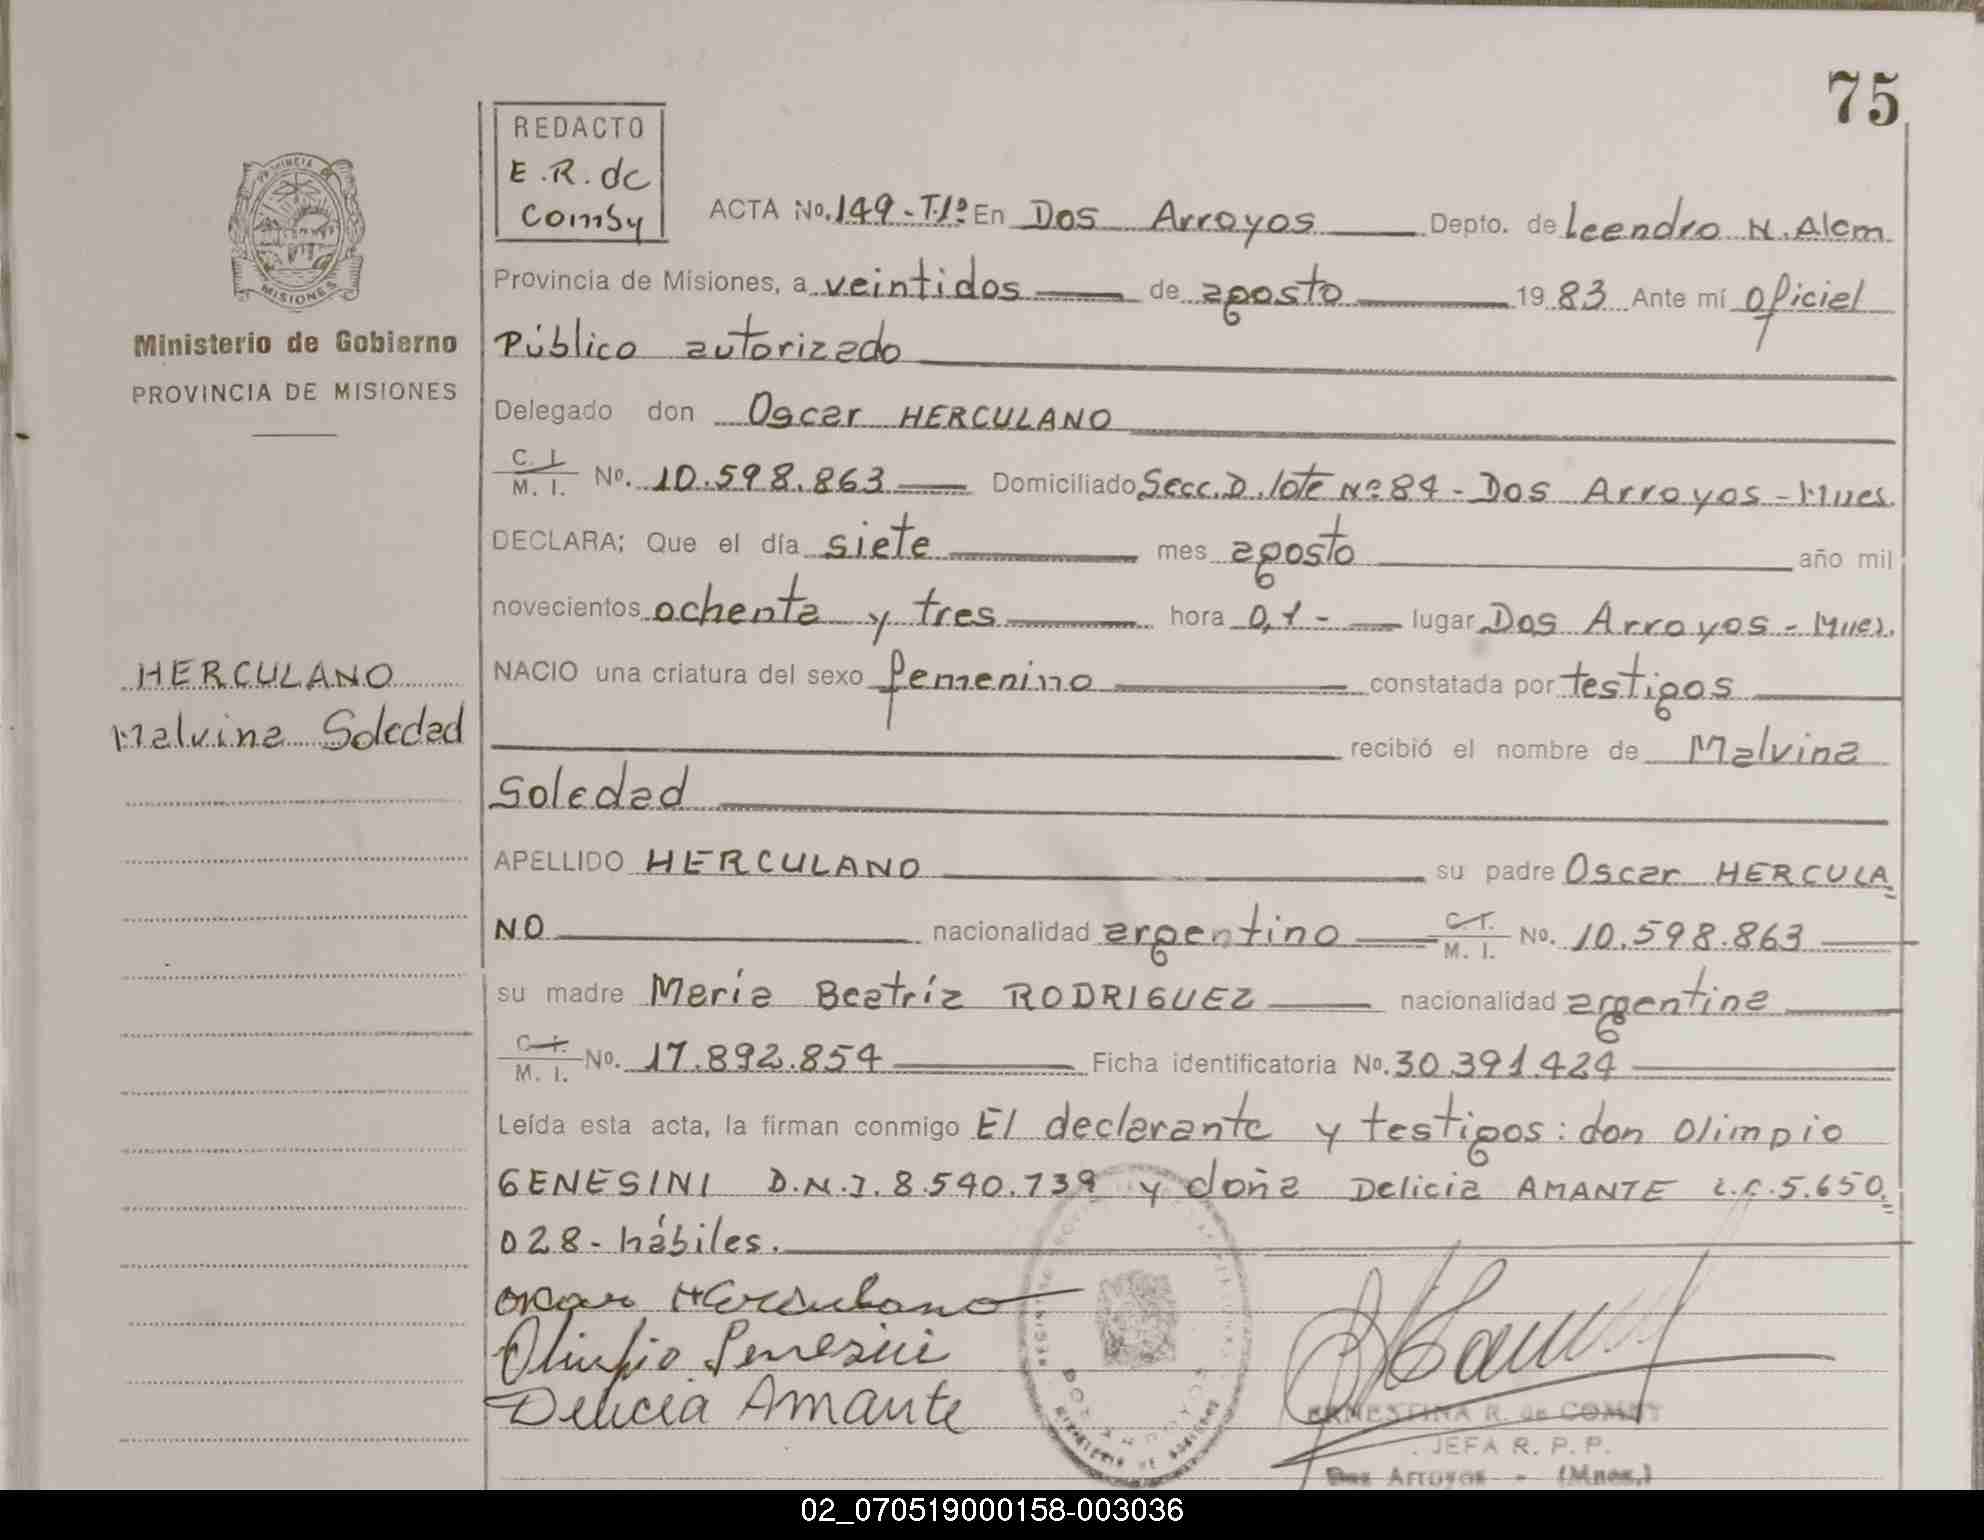 75
REDACTO
E.R. de
Comby
PROVINCIA
MISIONES
Ministerio de Gobierno
PROVINCIA DE MISIONES
ACTA No. 149-T.1º En Dos Arroyos Depto. de Leandro N. Alem
Provincia de Misiones, a veintidos de agosto 1983 Ante mí Oficial
Público autorizado
Delegado don Oscar HERCULANO
C. I. M. I. No. 10.598.863 Domiciliado Secc. D. lote Nº 84 - Dos Arroyos - Mnes.
DECLARA; Que el día siete mes agosto año mil
novecientos ochenta y tres hora 0,1- lugar Dos Arroyos - Mnes.
HERCULANO
Malvina Soledad
NACIO una criatura del sexo femenino constatada por testigos
recibió el nombre de Malvina
Soledad
APELLIDO HERCULANO su padre Oscar HERCULA=
NO nacionalidad argentino C.I. M. I. No. 10.598.863
su madre María Beatríz RODRIGUEZ nacionalidad argentina
C.I. M. I. No. 17.892.854 Ficha identificatoria No. 30.391.424
Leída esta acta, la firman conmigo El declarante y testigos: don Olimpio
GENESINI D.N.I. 8.540.739 y doña Delicia AMANTE L.C. 5.650.=
028- hábiles.
Oscar Herculano
Olimpio Genesini
Delicia Amante
ERNESTINA R. de COMBY
JEFA R. P. P.
Dos Arroyos - (Mnes.)
02_070519000158-003036